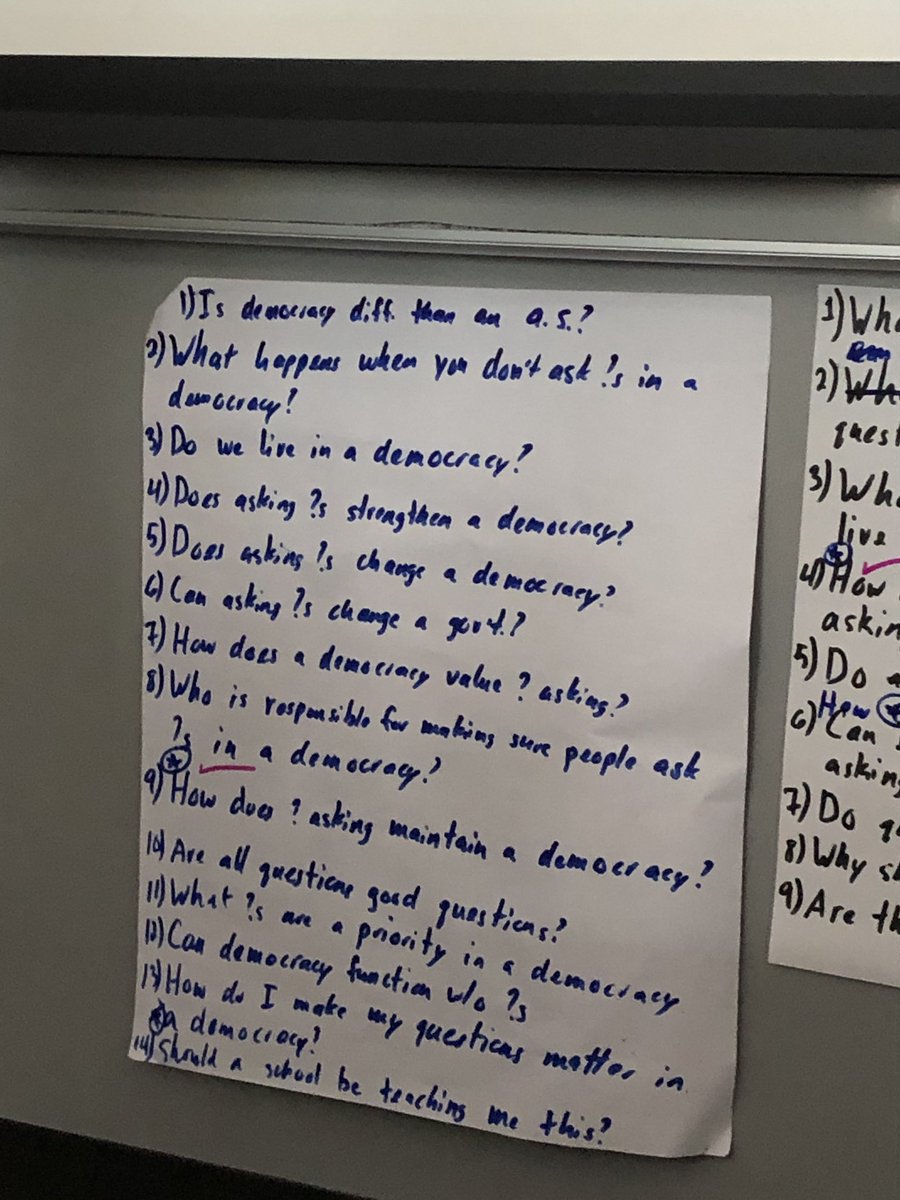 1) Is democracy diff. than an a.s.?
2) What happens when you don't ask ?s in a
democracy?
3) Do we live in a democracy?
4) Does asking ?s strengthen a democracy?
5) Does asking ?s change a democracy?
6) Can asking ?s change a gov't.?
7) How does a democracy value ? asking?
8) Who is responsible for making sure people ask
?s in a democracy?
9) How does ? asking maintain a democracy?
10) Are all questions good questions?
11) What ?s are a priority in a democracy
12) Can democracy function w/o ?s
13) How do I make my questions matter in
a democracy?
14) Should a school be teaching me this?
1)
2)
3)
live
4) How
5) Do
How
6) Can
7) Do
8) Why
9) Are